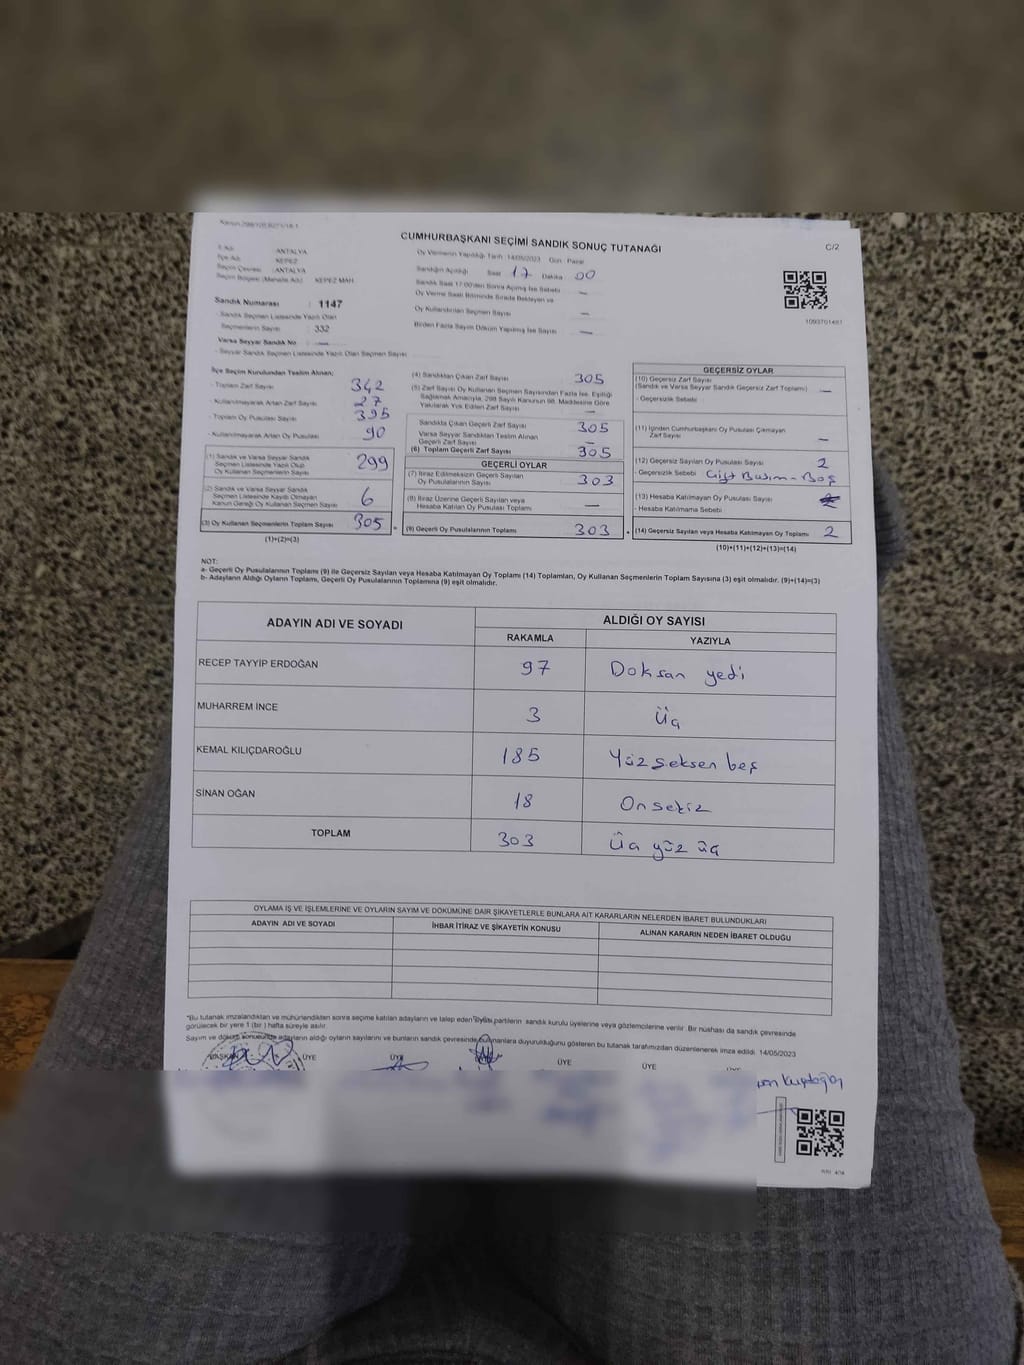 CUMHURBAŞKANI SEÇİMİ SANDIK SONUÇ TUTANAĞI
C/2
İl Adı : ANTALYA
İlçe Adı : KEPEZ
Seçim Çevresi : ANTALYA
Seçim Bölgesi (Mahalle Adı) : KEPEZ MAH.
Oy Vermenin Yapıldığı Tarih 14/05/2023 Gün : Pazar
Sandığın Açıldığı Saat 17 Dakika 00
Sandık Saat 17:00'den Sonra Açılmış İse Sebebi —
Oy Verme Saati Bitiminde Sırada Bekleyen ve
Oy Kullandırılan Seçmen Sayısı —
Birden Fazla Sayım Döküm Yapılmış İse Sayısı —
Sandık Numarası : 1147
- Sandık Seçmen Listesinde Yazılı Olan
Seçmenlerin Sayısı : 332
Varsa Seyyar Sandık No —
- Seyyar Sandık Seçmen Listesinde Yazılı Olan Seçmen Sayısı
İlçe Seçim Kurulundan Teslim Alınan;
- Toplam Zarf Sayısı 342
- Kullanılmayarak Artan Zarf Sayısı 27
- Toplam Oy Pusulası Sayısı 395
- Kullanılmayarak Artan Oy Pusulası 90
(1) Sandık ve Varsa Seyyar Sandık
Seçmen Listesinde Yazılı Olup
Oy Kullanan Seçmenlerin Sayısı 299
(2) Sandık ve Varsa Seyyar Sandık
Seçmen Listesinde Kayıtlı Olmayan
Kanun Gereği Oy Kullanan Seçmen Sayısı 6
(3) Oy Kullanan Seçmenlerin Toplam Sayısı 305
(1)+(2)=(3)
(4) Sandıktan Çıkan Zarf Sayısı 305
(5) Zarf Sayısı Oy Kullanan Seçmen Sayısından Fazla İse, Eşitliği
Sağlamak Amacıyla, 298 Sayılı Kanunun 98. Maddesine Göre
Yakılarak Yok Edilen Zarf Sayısı —
Sandıkta Çıkan Geçerli Zarf Sayısı 305
Varsa Seyyar Sandıktan Teslim Alınan
Geçerli Zarf Sayısı —
(6) Toplam Geçerli Zarf Sayısı 305
GEÇERLİ OYLAR
(7) İtiraz Edilmeksizin Geçerli Sayılan
Oy Pusulalarının Sayısı 303
(8) İtiraz Üzerine Geçerli Sayılan veya
Hesaba Katılan Oy Pusulası Toplamı —
(9) Geçerli Oy Pusulalarının Toplamı 303
GEÇERSİZ OYLAR
(10) Geçersiz Zarf Sayısı
(Sandık ve Varsa Seyyar Sandık Geçersiz Zarf Toplamı) —
- Geçersizlik Sebebi
(11) İçinden Cumhurbaşkanı Oy Pusulası Çıkmayan
Zarf Sayısı —
(12) Geçersiz Sayılan Oy Pusulası Sayısı 2
- Geçersizlik Sebebi Çift Basım - Boş
(13) Hesaba Katılmayan Oy Pusulası Sayısı
- Hesaba Katılmama Sebebi
(14) Geçersiz Sayılan veya Hesaba Katılmayan Oy Toplamı 2
(10)+(11)+(12)+(13)=(14)
NOT:
a- Geçerli Oy Pusulalarının Toplamı (9) ile Geçersiz Sayılan veya Hesaba Katılmayan Oy Toplamı (14) Toplamları, Oy Kullanan Seçmenlerin Toplam Sayısına (3) eşit olmalıdır. (9)+(14)=(3)
b- Adayların Aldığı Oyların Toplamı, Geçerli Oy Pusulalarının Toplamına (9) eşit olmalıdır.
ADAYIN ADI VE SOYADI
ALDIĞI OY SAYISI
RAKAMLA YAZIYLA
RECEP TAYYİP ERDOĞAN 97 Doksan yedi
MUHARREM İNCE 3 Üç
KEMAL KILIÇDAROĞLU 185 Yüz seksen beş
SİNAN OĞAN 18 On sekiz
TOPLAM 303 Üç yüz üç
OYLAMA İŞ VE İŞLEMLERİNE VE OYLARIN SAYIM VE DÖKÜMÜNE DAİR ŞİKAYETLERLE BUNLARA AİT KARARLARIN NELERDEN İBARET BULUNDUKLARI
ADAYIN ADI VE SOYADI İHBAR İTİRAZ VE ŞİKAYETİN KONUSU ALINAN KARARIN NEDEN İBARET OLDUĞU
*Bu tutanak imzalandıktan ve mühürlendikten sonra seçime katılan adayların ve talep eden siyasi partilerin sandık kurulu üyelerine veya gözlemcilerine verilir. Bir nüshası da sandık çevresinde
görülecek bir yere 1 (bir) hafta süreyle asılır.
Sayım ve döküm sonucunda adayların aldığı oyların sayılarını ve bunların sandık çevresinde bulunanlara duyurulduğunu gösteren bu tutanak tarafımızdan düzenlenerek imza edildi. 14/05/2023
BAŞKAN ÜYE ÜYE ÜYE ÜYE